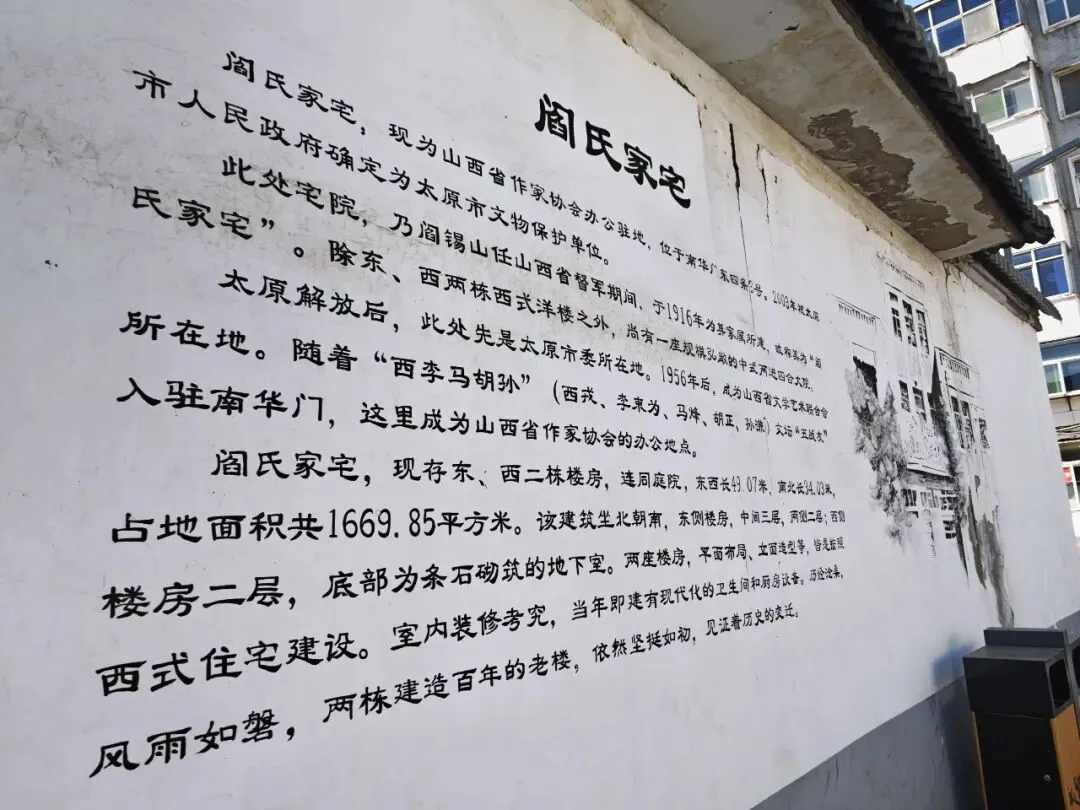 阎氏家宅
阎氏家宅，现为山西省作家协会办公驻地，位于南华门东四条3号。2003年被太原
市人民政府确定为太原市文物保护单位。
此处宅院，乃阎锡山任山西省督军期间，于1916年为其家属所建，故称其为“阎
氏家宅”。除东、西两栋西式洋楼之外，尚有一座规模弘敞的中式两进四合大院。
太原解放后，此处先是太原市委所在地。1956年后，成为山西省文学艺术联合会
所在地。随着“西李马胡孙”（西戎、李束为、马烽、胡正、孙谦）文坛“五战友”
入驻南华门，这里成为山西省作家协会的办公地点。
阎氏家宅，现存东、西二栋楼房，连同庭院，东西长49.07米，南北长34.03米，
占地面积共1669.85平方米。该建筑坐北朝南，东侧楼房，中间三层，两侧二层；西侧
楼房二层，底部为条石砌筑的地下室。两座楼房，平面布局、立面造型等，皆是按照
西式住宅建设。室内装修考究，当年即建有现代化的卫生间和厨房设备。历经沧桑，
风雨如磐，两栋建造百年的老楼，依然坚挺如初，见证着历史的变迁。